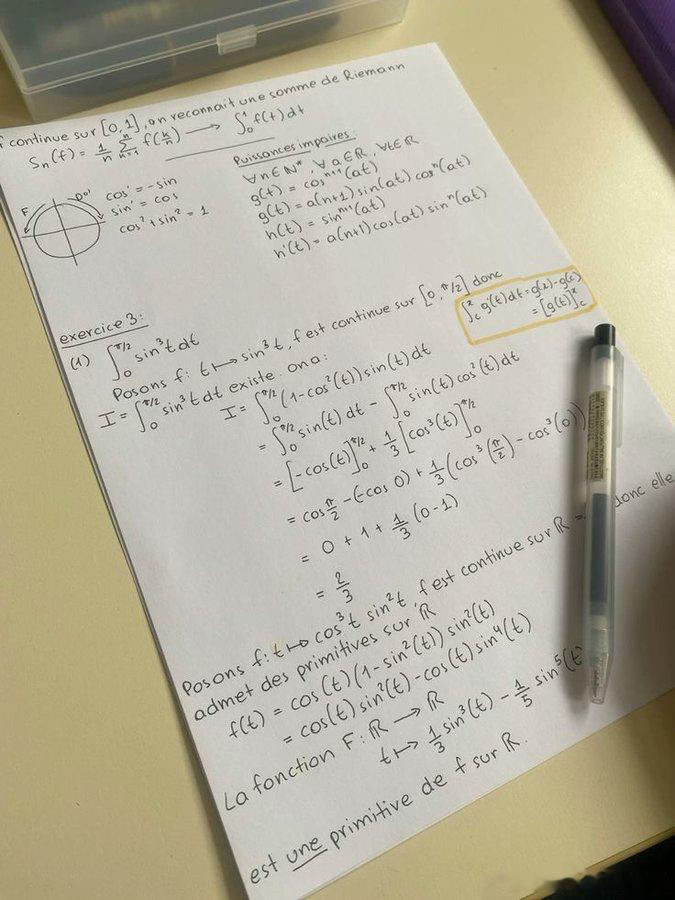 f continue sur [0,1], on reconnait une somme de Riemann
Sn(f) = 1/n ∑_{k=1}^{n} f(k/n) ⟶ ∫_0^1 f(t)dt
cos' = -sin
sin' = cos
cos² + sin² = 1
F
Puissances impaires:
∀n∈ℕ*, ∀a∈ℝ, ∀t∈ℝ
g(t) = cos^{n+1}(at)
g(t) = a(n+1) sin(at) cos^n(at)
h(t) = sin^{n+1}(at)
h'(t) = a(n+1)cos(at) sin^n(at)
exercice 3:
(1) ∫_0^{π/2} sin³t dt
Posons f: t ⟼ sin³t, f est continue sur [0, π/2] donc
∫_c^x g'(t)dt = g(x) - g(c)
= [g(t)]_c^x
I = ∫_0^{π/2} sin³t dt existe. on a:
I = ∫_0^{π/2} (1-cos²(t)) sin(t) dt
= ∫_0^{π/2} sin(t) dt - ∫_0^{π/2} sin(t) cos²(t) dt
= [-cos(t)]_0^{π/2} + 1/3 [cos³(t)]_0^{π/2}
= cos π/2 - (-cos 0) + 1/3 (cos³(π/2) - cos³(0))
= 0 + 1 + 1/3 (0-1)
= 2/3
Posons f: t ⟼ cos³t sin²t f est continue sur ℝ donc elle
admet des primitives sur ℝ
f(t) = cos(t) (1-sin²(t)) sin²(t)
= cos(t) sin²(t) - cos(t) sin⁴(t)
La fonction F: ℝ ⟶ ℝ
t ⟼ 1/3 sin³(t) - 1/5 sin⁵(t)
est une primitive de f sur ℝ.